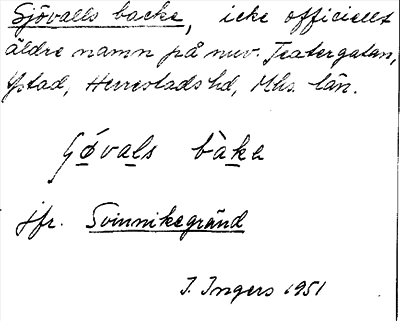 Sjövalls backe, icke officiellt
äldre namn på nuv. Teatergatan,
Ystad, Herrestads hd, Mhs. län.
bàka
jfr. Svinnikegränd
I. Ingers 1951